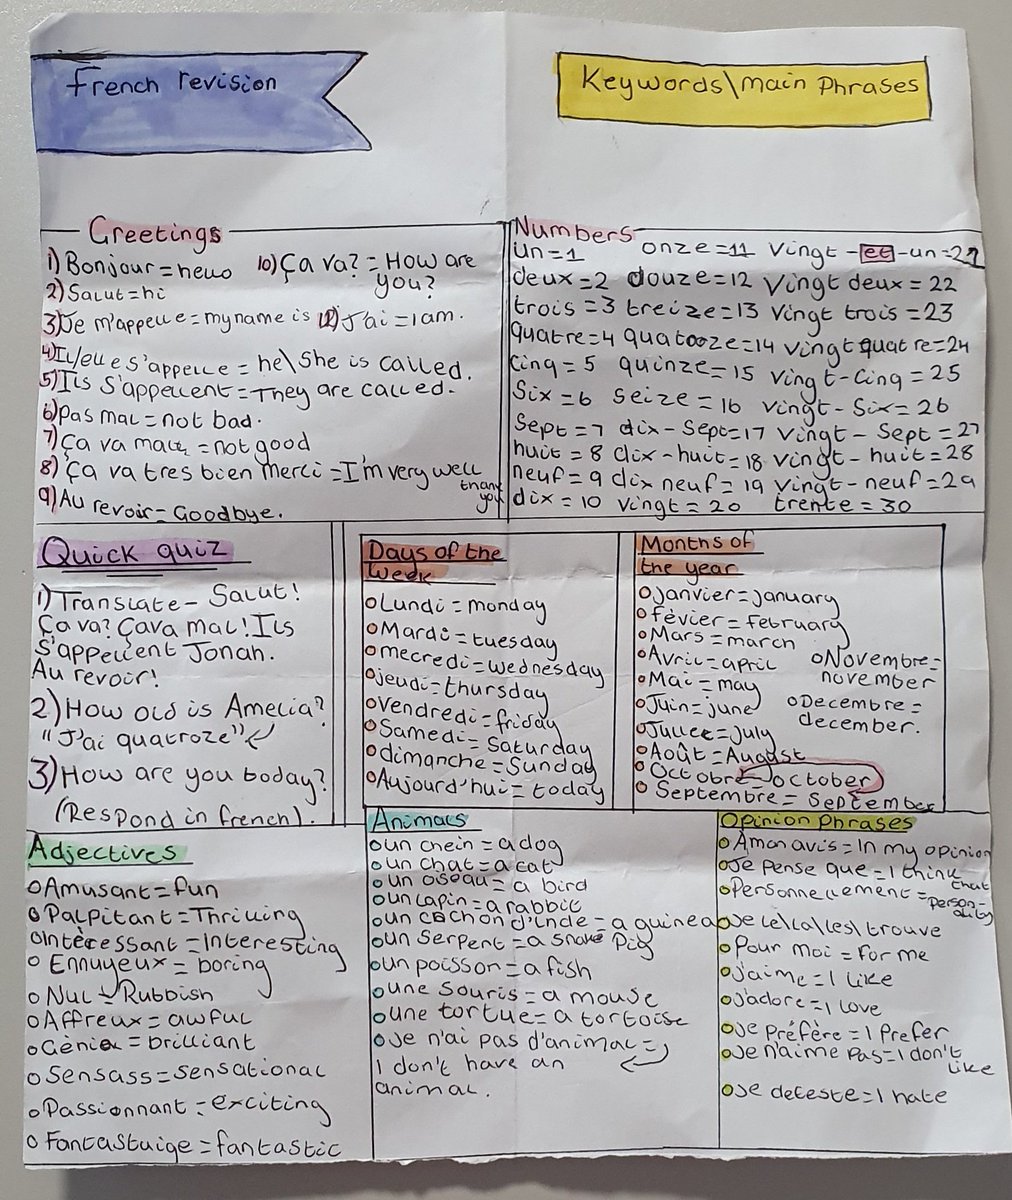 French revision
Keywords\main Phrases
Greetings
1) Bonjour = hello
10) Ça va? = How are you?
2) Salut = hi
3) Je m'appelle = my name is
J'ai = I am.
4) Il/elle s'appelle = he\she is called.
5) Ils s'appellent = They are called.
6) pas mal = not bad.
7) Ça va mal = not good
8) Ça va tres bien merci = I'm very well thank you
9) Au revoir = Goodbye.
Numbers
un = 1 onze = 11 Vingt - et - un = 21
deux = 2 douze = 12 Vingt deux = 22
trois = 3 treize = 13 Vingt trois = 23
quatre = 4 quatooze = 14 vingt quatre = 24
Cinq = 5 quinze = 15 vingt - cinq = 25
Six = 6 seize = 16 vingt - Six = 26
Sept = 7 dix - Sept = 17 vingt - Sept = 27
huit = 8 dix - huit = 18 vingt - huit = 28
neuf = 9 dix neuf = 19 vingt - neuf = 29
dix = 10 vingt = 20 trente = 30
Quick quiz
1) Translate - Salut!
Ça va? Ça va mal! Ils
s'appellent Jonah.
Au revoir!
2) How old is Amelia?
"J'ai quatroze"
3) How are you today?
(Respond in french).
Days of the
Week
Lundi = monday
Mardi = tuesday
mecredi = wednesday
jeudi = thursday
Vendredi = friday
Samedi = Saturday
dimanche = Sunday
Aujourd'hui = today
Months of
the year
Janvier = january
févier = february
Mars = march
Avril = april
Mai = may
Juin = june
= July
Août = August
Octobre = october
Septembre = September
Novembre =
november
Decembre =
december.
Adjectives
Amusant = fun
Palpitant = Thrilling
= Interesting
Ennuyeux = boring
Nul = Rubbish
Affreux = awful
= brilliant
Sensass = sensational
Passionnant = exciting
Fantastuige = fantastic
Animals
un chein = a dog
un chat = a cat
un oiseau = a bird
un lapin = a rabbit
un cochon d'Inde = a guinea pig
un serpent = a snake
un poisson = a fish
une souris = a mouse
une tortue = a tortoise
Je n'ai pas d'animal =
I don't have an
animal.
Opinion phrases
Àmon avis = In my opinion
Je pense que = I think that
Personnellement = personality
Je le\la\les\ trouve
Pour moi = for me
J'aime = I like
J'adore = I love
Je préfère = I prefer
Je n'aime pas = I don't like
Je deteste = I hate